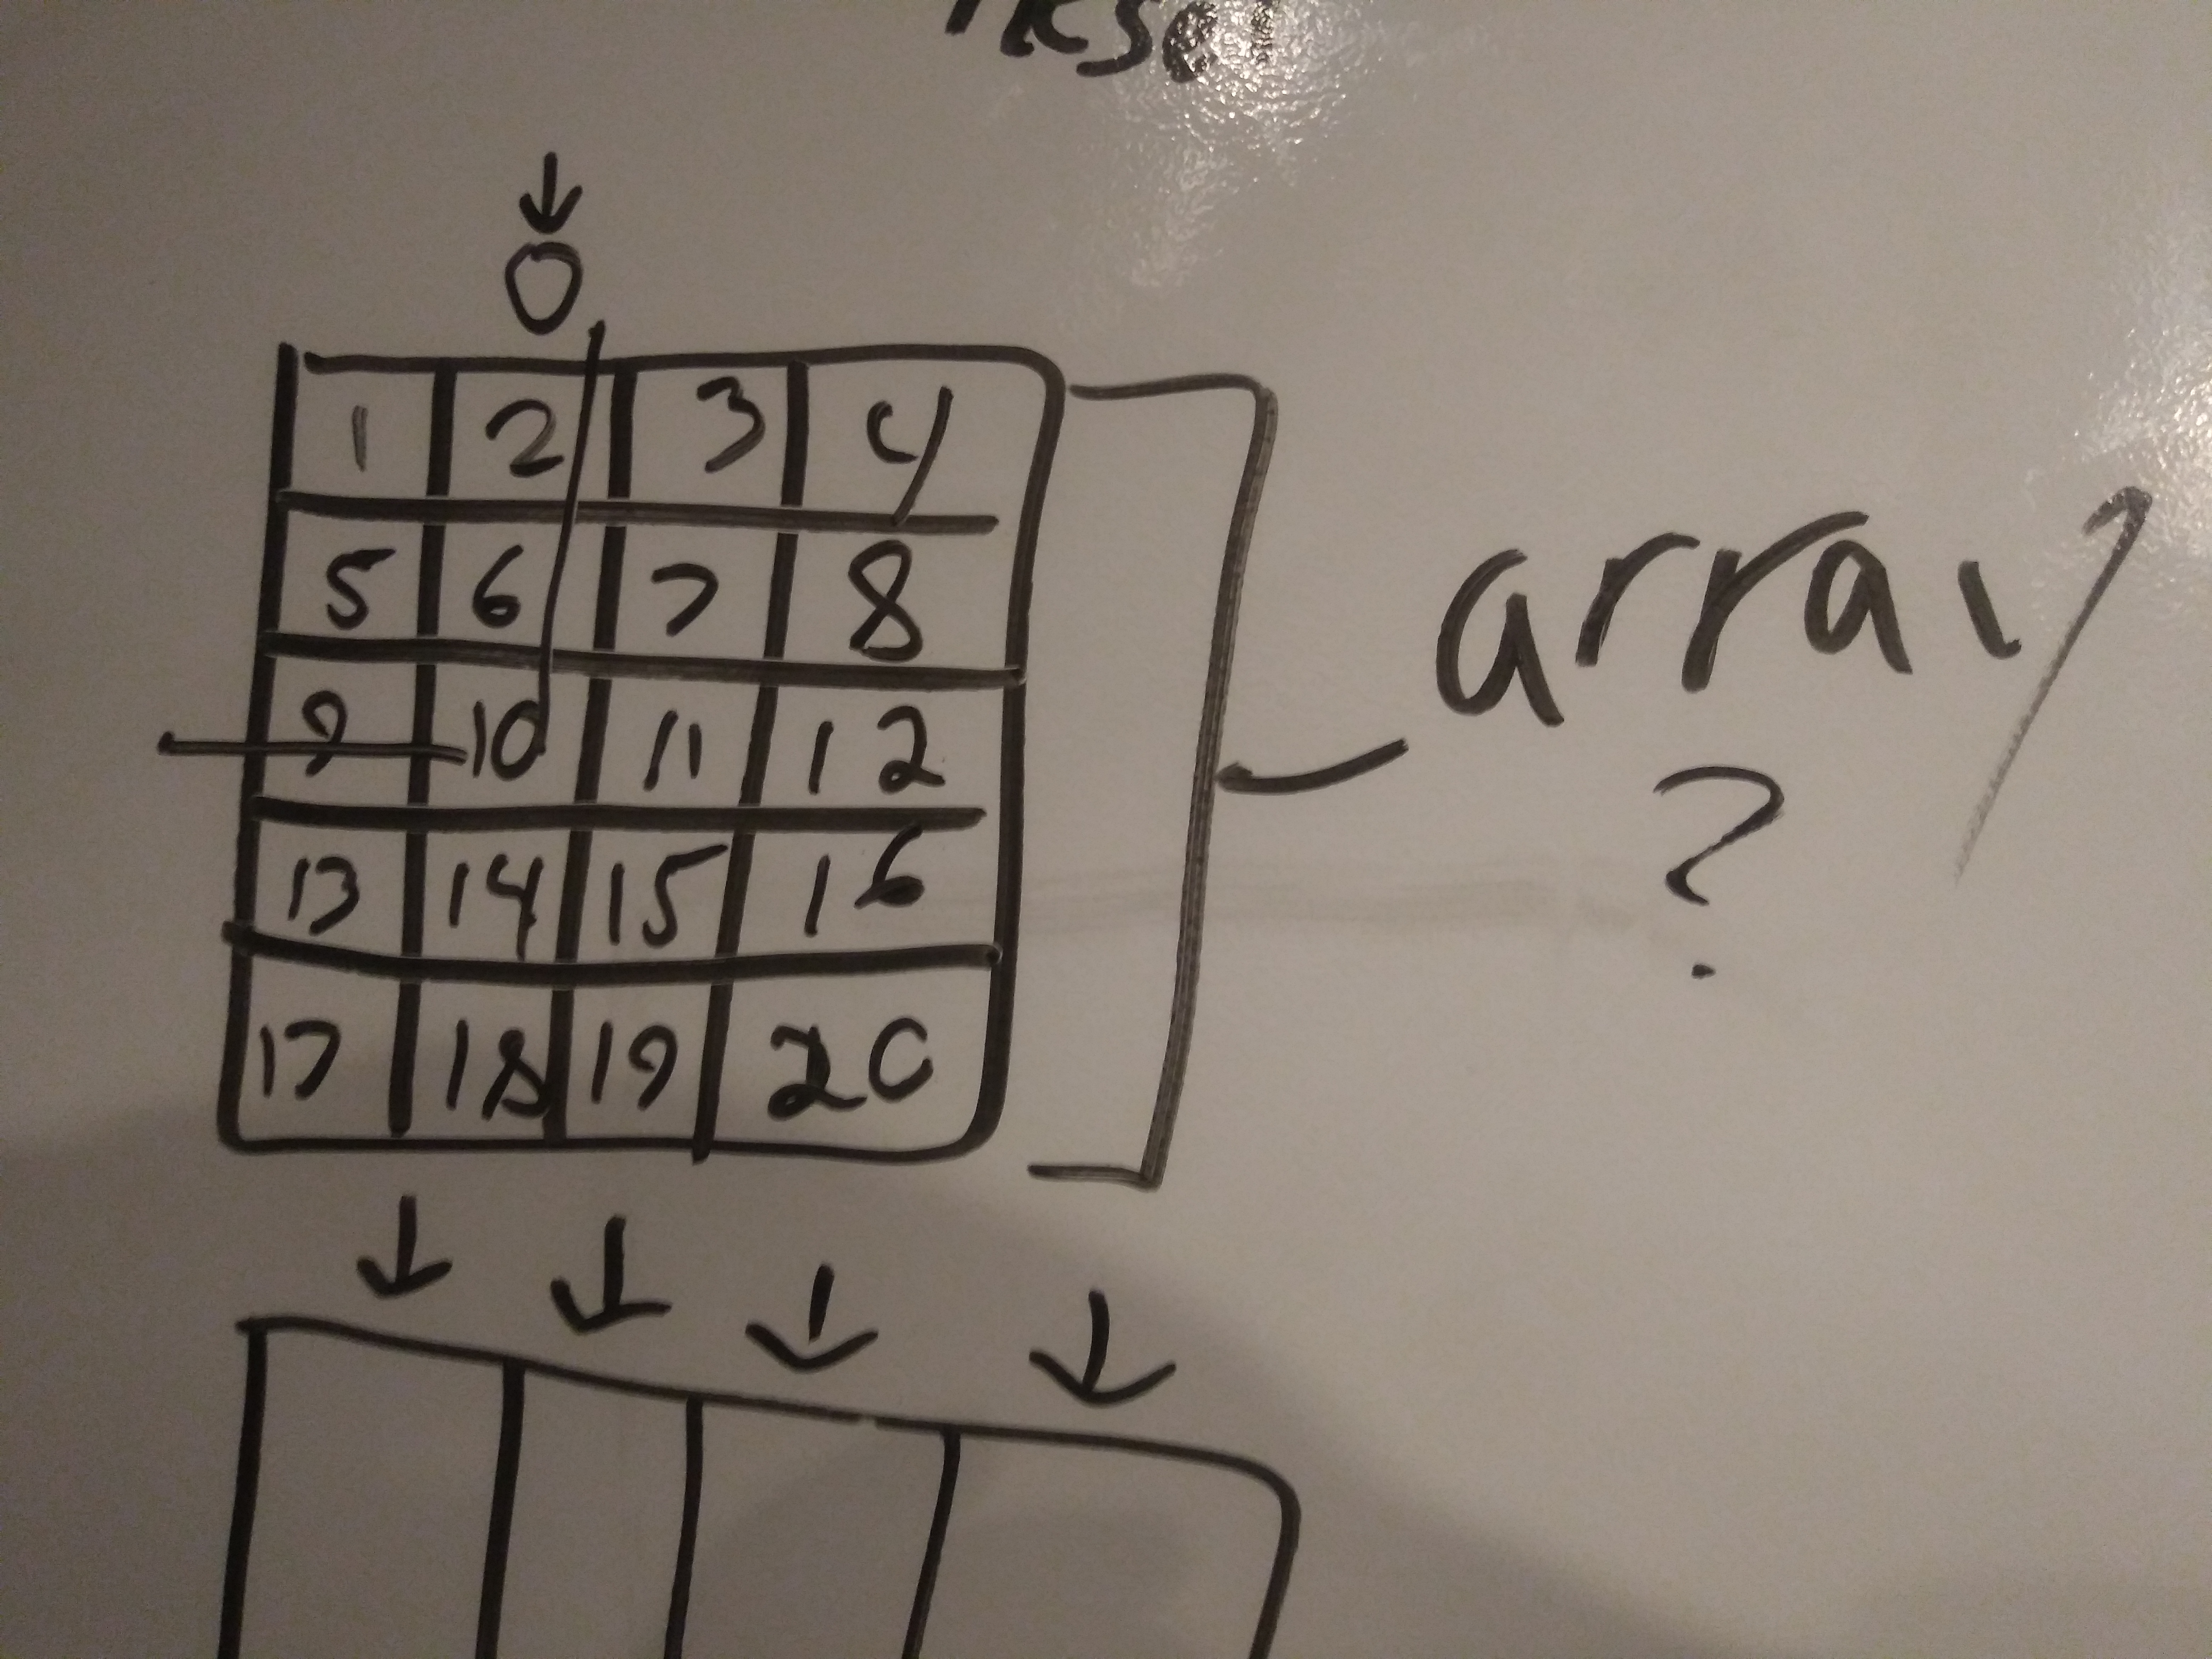 0
1 2 3 4
5 6 7 8
9 10 11 12
13 14 15 16
17 18 19 20
array
?